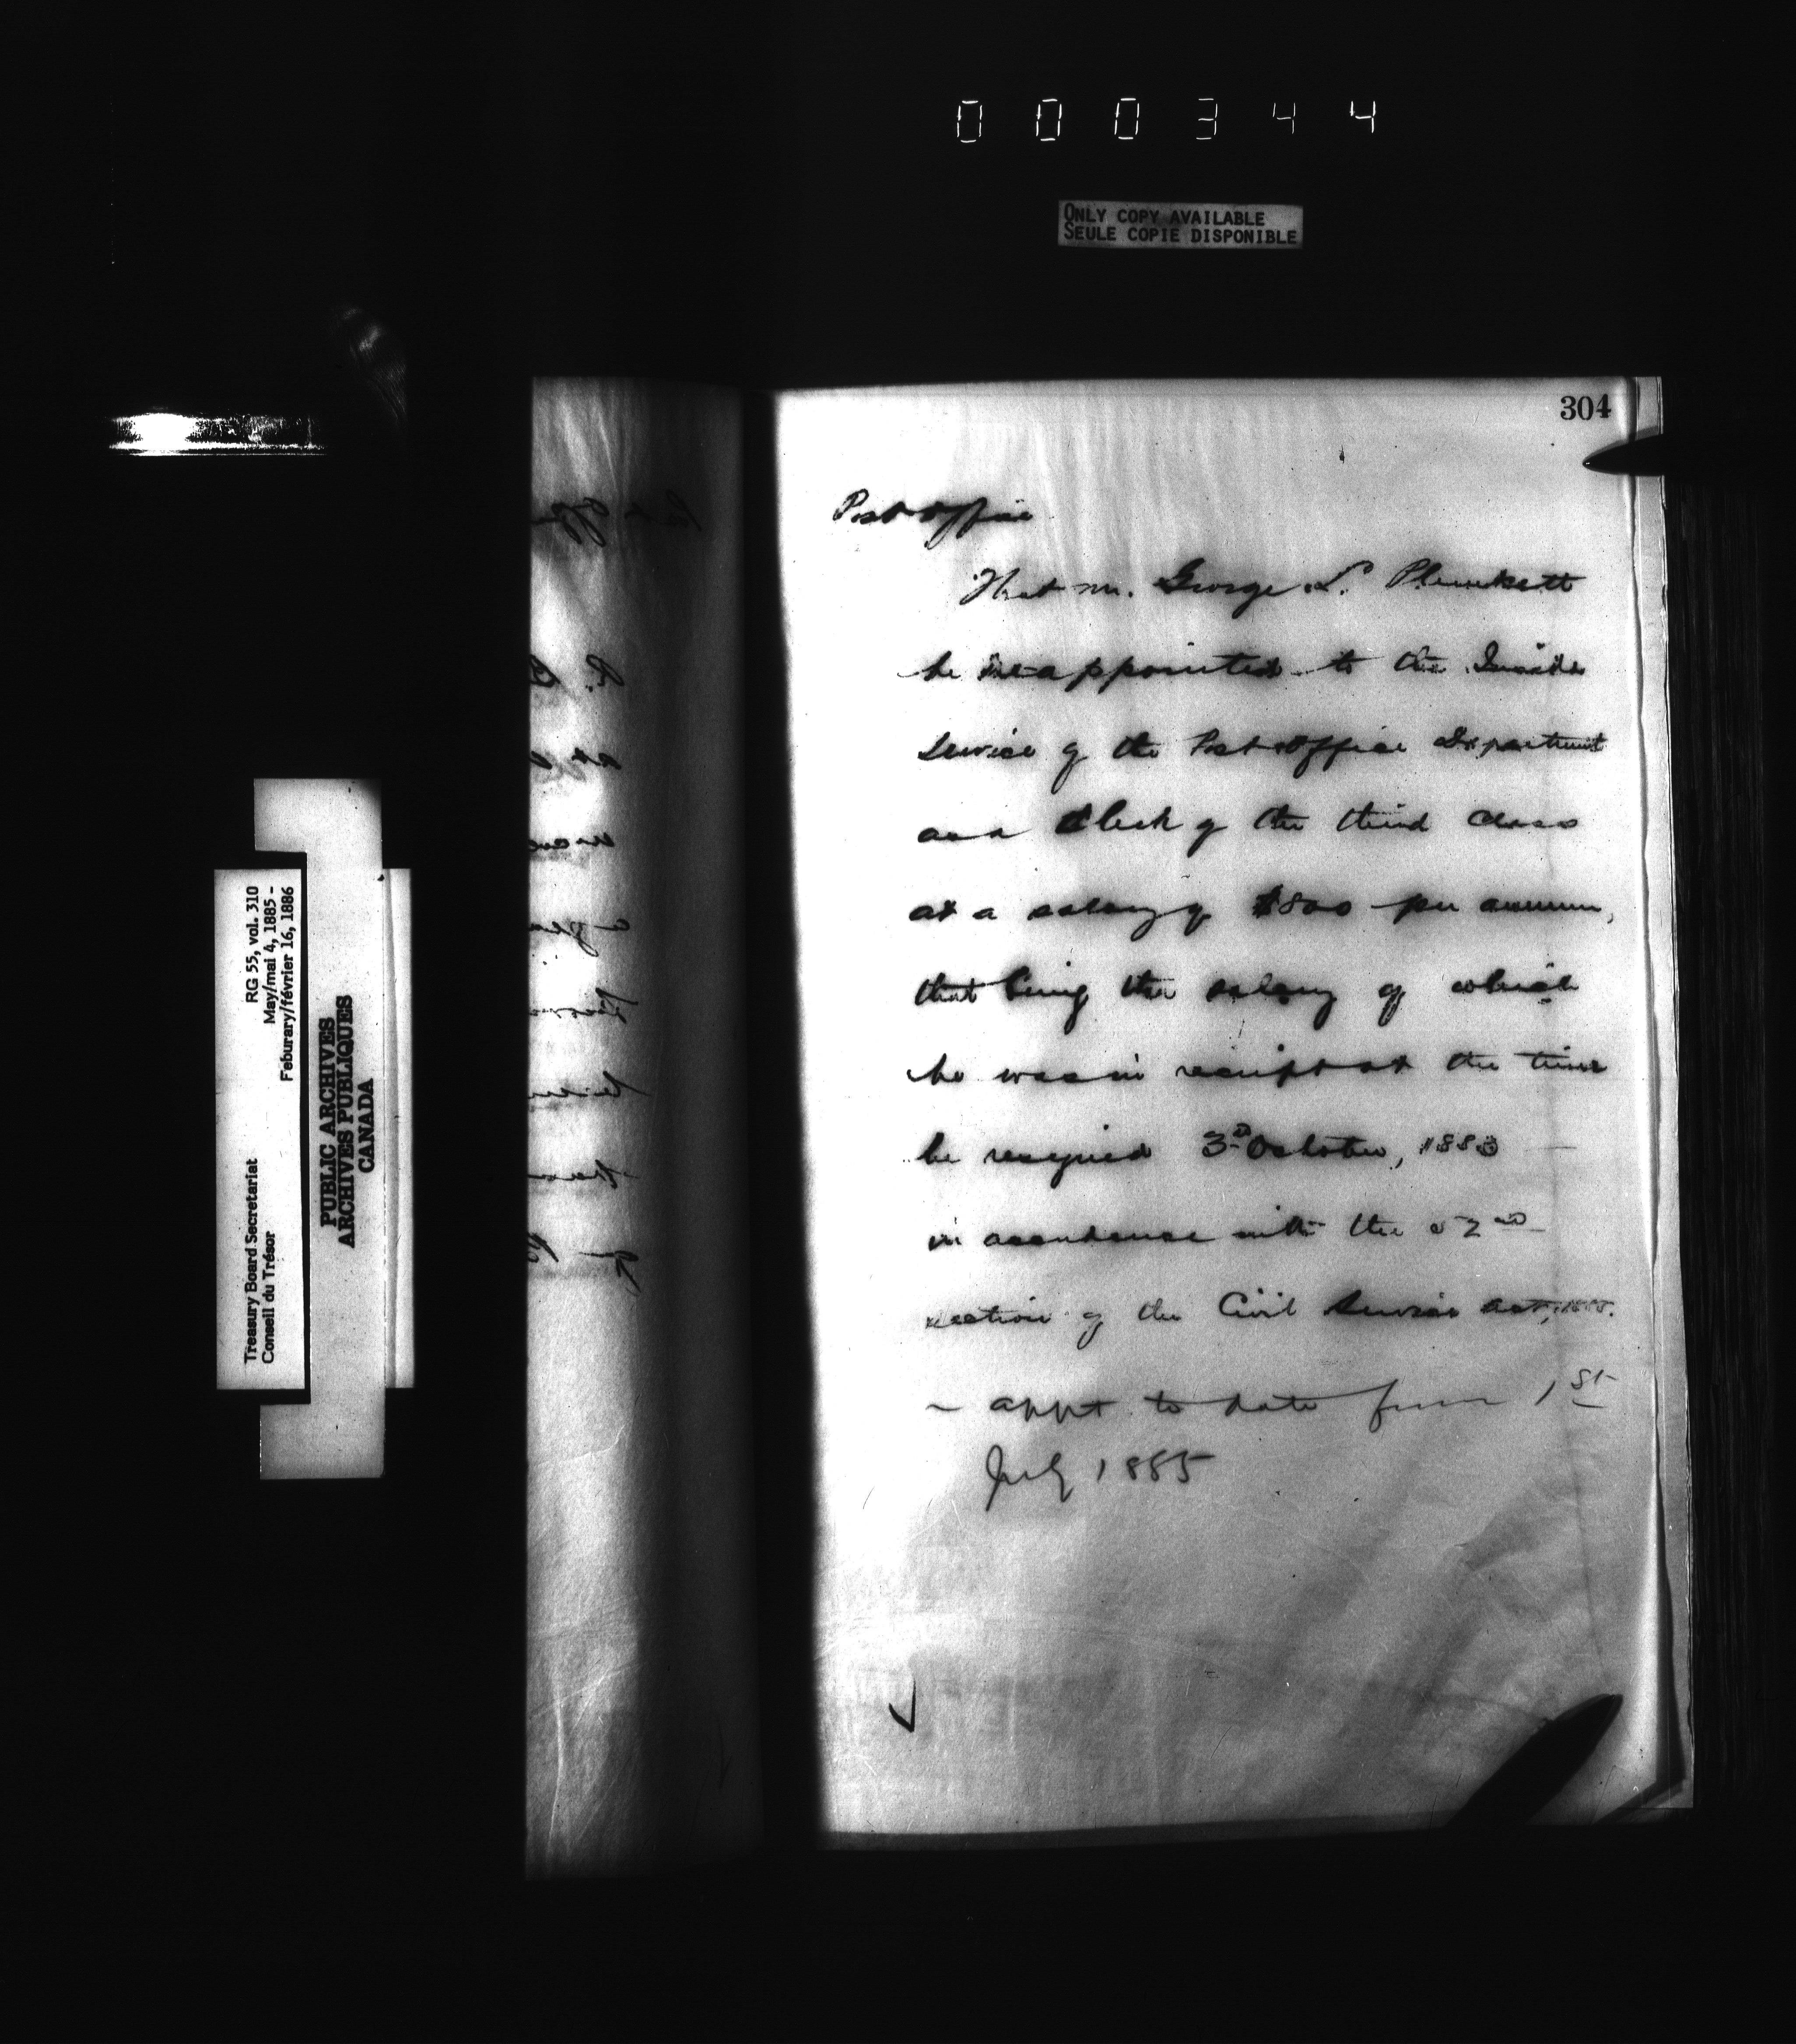 000344
ONLY COPY AVAILABLE
SEULE COPIE DISPONIBLE
304
Post Office
That Mr. George S. Plunkett
be re appointed to the Inside
Service of the Post Office Department
as a Clerk of the third Class
at a salary of $800 per annum,
that being the salary of which
he was in receipt at the time
he resigned 3rd October, 1883
in accordance with the 52nd
section of the Civil Service Act,
~ appt to date from 1st
July 1885
Treasury Board Secretariat RG 55, vol. 310
Conseil du Trésor May/mai 4, 1885 -
Feburary/février 16, 1886
PUBLIC ARCHIVES
ARCHIVES PUBLIQUES
CANADA